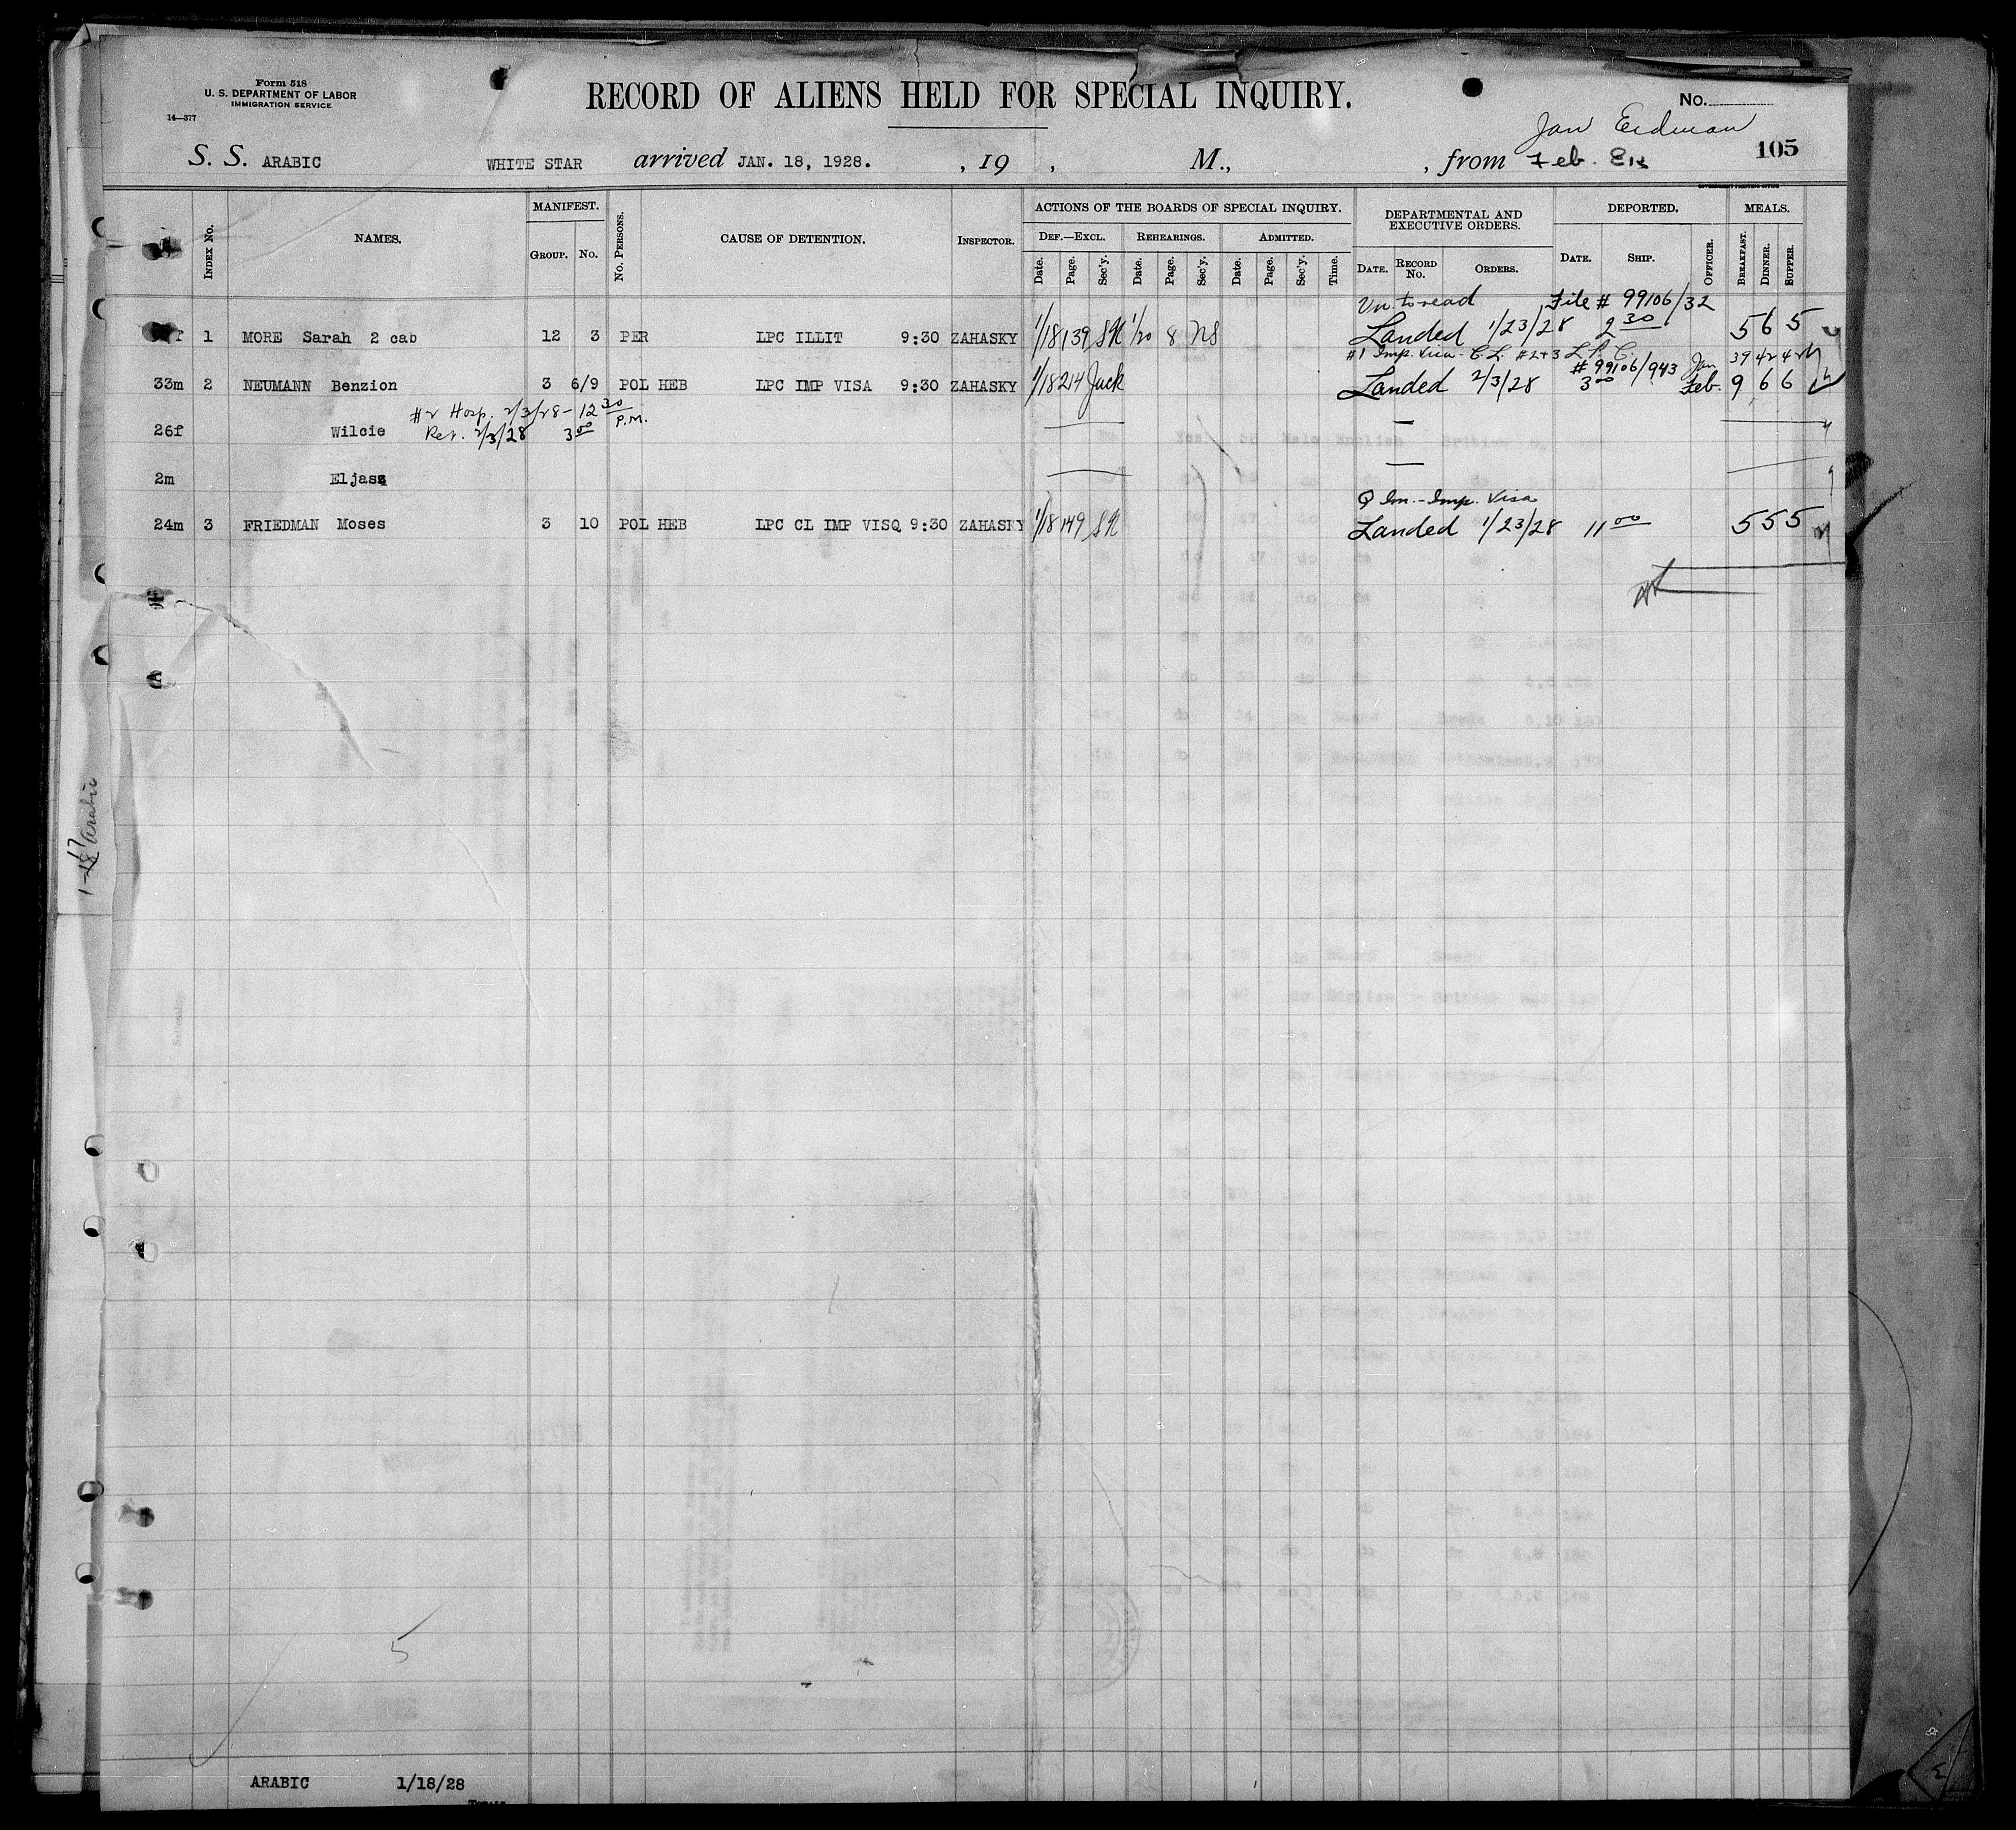 Form 518
U. S. DEPARTMENT OF LABOR
IMMIGRATION SERVICE
14—377
RECORD OF ALIENS HELD FOR SPECIAL INQUIRY.
No.
Jan Erdman
105
S. S. ARABIC WHITE STAR arrived JAN. 18, 1928. , 19 , M., , from Feb.
GOVERNMENT PRINTING OFFICE
INDEX No. NAMES. MANIFEST. GROUP. No. No. PERSONS. CAUSE OF DETENTION. INSPECTOR.
ACTIONS OF THE BOARDS OF SPECIAL INQUIRY. DEF.—EXCL. REHEARINGS. ADMITTED.
Date. Page. Sec'y. Date. Page. Sec'y. Date. Page. Sec'y. Time.
DEPARTMENTAL AND EXECUTIVE ORDERS. DATE. RECORD No. ORDERS.
DEPORTED. DATE. SHIP. OFFICER.
MEALS. BREAKFAST. DINNER. SUPPER.
Un. to read File # 99106/32
f 1 MORE Sarah 2 cab 12 3 PER LPC ILLIT 9:30 ZAHASKY 1/18 139 SK 1/20 8 NS Landed 1/23/28 2 30 5 6 5
#1 Imp. Visa - C.L. #2+3 L.P.C. # 99106/943 Jan 39 42 42
33m 2 NEUMANN Benzion 3 6/9 POL HEB LPC IMP VISA 9:30 ZAHASKY 1/18 214 Jack Landed 2/3/28 3 00 Feb. 9 6 6
#2 Hosp. 2/3/28 - 12 30 P.M.
26f Wilcie Ret. 2/3/28 3 00
2m Eljasz
Q Im. - Imp. Visa
24m 3 FRIEDMAN Moses 3 10 POL HEB LPC CL IMP VISQ 9:30 ZAHASKY 1/18 149 SK Landed 1/23/28 11 00 5 5 5
Arabic
5
ARABIC 1/18/28